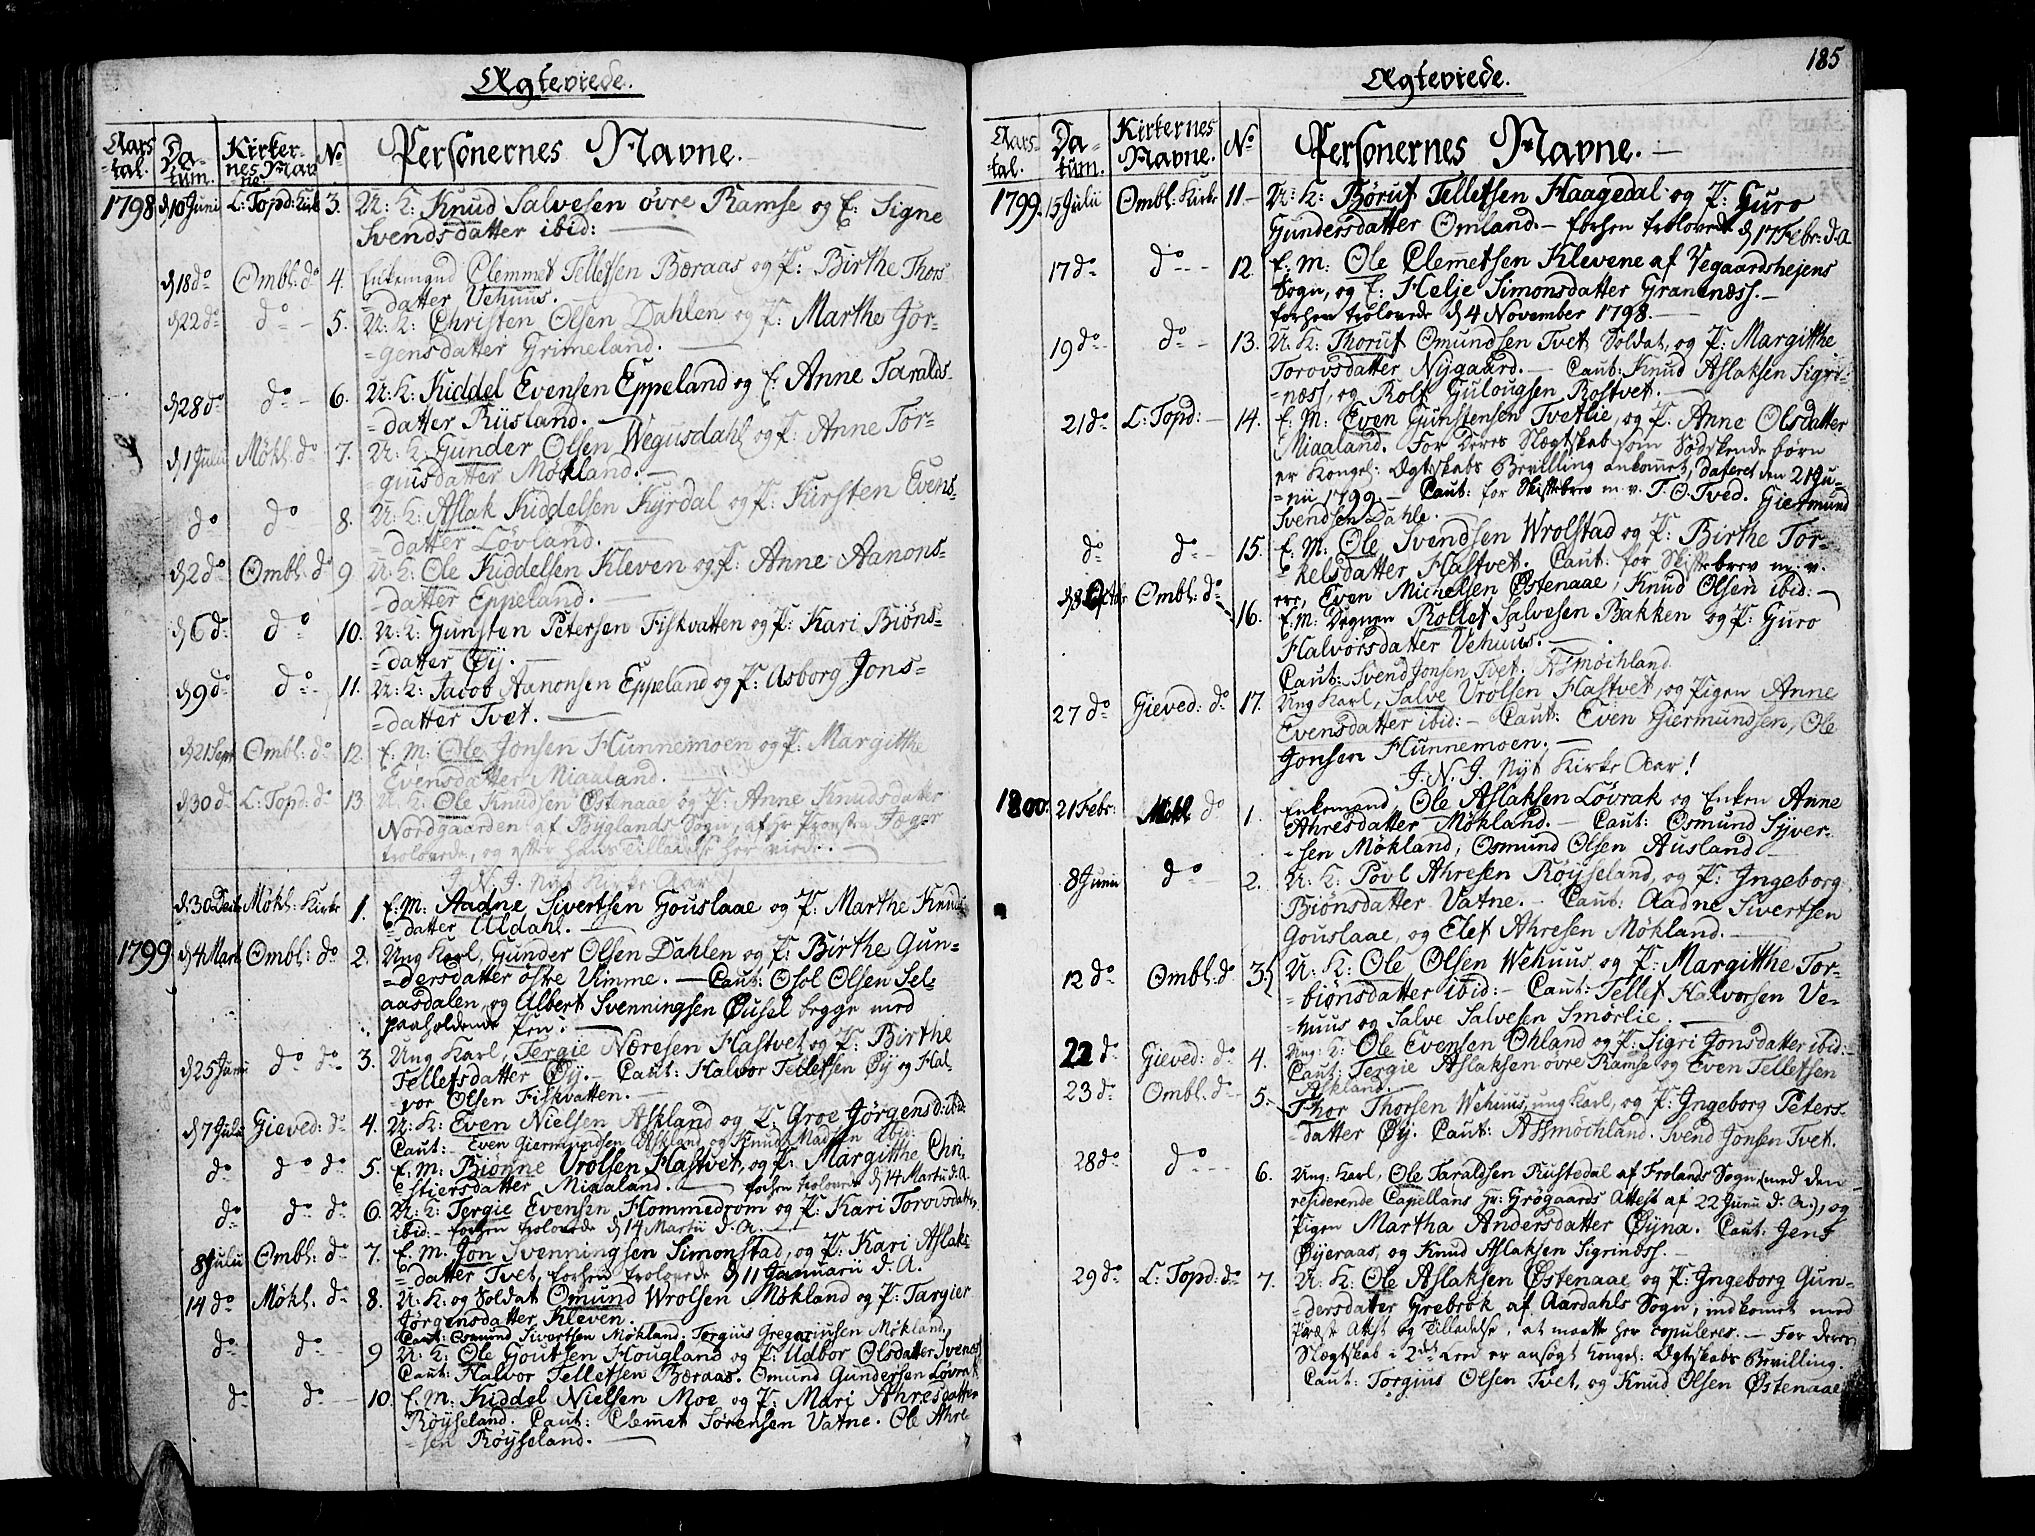 Ægteviede.
Aars tal. Da- tum. Kirker- nes Nav ne No Personernes Navne.
1798 d 10 Juni L: Topd: Kirk 3. U: K: Knud Salvesen øvre Ramse og E: Signe
Svendsdatter ibid:
d 18 do Ombl: do 4. Enkemand Clemmet Tellefsen Bæraas og P: Birthe Thors-
=datter Vehuus.
d 22 do do 5. U: K: Christen Olsen Dahlen og P: Marthe Jør-
=gensdatter Grimeland.
d 28 do do 6. U: K: Kiddel Evensen Eppeland og E: Anne Taralds-
=datter Riisland.
d 1 Julii Møkl: do 7. U: K: Gunder Olsen Wegusdahl og P: Anne Tor-
=guisdatter Møkland.
do do 8. U: K: Aslak Kiddelsen Kyrdal og P: Kirsten Evens-
=datter Løvland.
d 2 do Ombl: do 9 U: K: Ole Kiddelsen Kleven og P: Anne Aanons-
=datter Eppeland.
d 6 do do 10. U: K: Gunsten Petersen Fiskvatten og P: Kari Biøns-
=datter Øy.
d 9 do do 11. U: K: Jacob Aanonsen Eppeland og P: Asborg Jons-
=datter Tvet.
d 21 Sept Ombl: do 12. E: M: Ole Jonsen Hunnemoen og P: Margitthe
Evensdatter Miaaland.
d 30 do L: Topd: do 13. U: K: Ole Knudsen Østenaae og P: Anne Knudsdatter
Nordgaarden af Byglands Sogn, af Hr Provsten Jæger
trolovede, og efter hans Tilladelse her viede.
J. N. J. Nyt Kirke Aar!
d 30 Decb Møkl: Kirke 1. E: M: Aadne Sivertsen Gouslaae og P: Marthe Knuds
=datter Uldahl.
1799 d 4 Mart Ombl: do 2. Ung Karl, Gunder Olsen Dahlen og P: Birthe Gun-
=dersdatter østre Vimme. — Caut: Osol Olsen Sel-
aasdalen, og Albert Svenningsen Øusel begge med
paaholdende Pen:
d 25 Junii do do 3. Ung Karl, Tergie Næresen Hastvet og P: Birthe
Tellefsdatter Øy. — Caut: Halvor Tellefsen Øy og Hal-
=vor Olsen Fiskvatten.
d 7 Julii Gieved: do 4. U: K: Even Nielsen Askland og P: Groe Jørgensd: ibid:
Caut: Even Giermundsen Askland og Knud Madsen ibid:
do do do 5. E: M: Biønne Vrolsen Hastvet, og P: Margitthe Chri-
=stiersdatter Miaaland. forhen trolovede d 14 Martii d. A.
do do do 6. U: K: Tergie Evensen Hommedrom og P: Kari Torovsdatter
ibid: forhen trolovede d 14 Martii d. A.
8 Julii Ombl: do 7. E: M: Jon Svenningsen Simonstad, og P: Kari Aslaks-
=datter Tvet, forhen trolovede d 11 Januarii d. A.
14 do Møkl. do 8. U: K: og Soldat Omund Wrolsen Møkland og P: Targier
Jørgensdatter Kleven.
Caut: Osmund Sivertsen Møkland. Torgius Gregariusen Møkland.
do do 9 U: K: Ole Goutsen Hougland og P: Udbor Olsdatter Svenæs
Caut: Halvor Tellefsen Bæraas. Omund Gundersen Løvrak
do do 10. E: M: Kiddel Nielsen Moe og P: Mari Ahresdatter
Røyseland. Caut: Clemet Sørensen Vatne. Ole Ahre-
=sen Røyseland.
185
Ægteviede.
Aars- tal. Da- tum. Kirkernes Navne. No Personernes Navne.
1799. 15 Julii Ombl: Kirke 11. U: K: Børuf Tellefsen Haagedal og P: Guro
Gundersdatter Omland. — forhen trolovede d 17 Febr: d. A
17 do do 12. E: M: Ole Clemetsen Klevene af Vegaardshejens
Sogn, og E: Helje Simonsdatter Grannæss.
forhen trolovede d 4 November 1798.
19 do do 13. U: K: Thoruf Omundsen Tvet Soldat, og P: Margitthe
Torovsdatter Nygaard. — Caut: Knud Aslaksen Sigri-
=næss, og Rolf Gulougsen Rostvet.
21 do L: Topd: 14. E: M: Even Gunstensen Tvetlie, og P: Anne Olsdatter
Miaaland. For Deres Slegtskab som Sødskende børn
er Kongel: Ægtskabs Bevilling ankomet, dateret den 21 Ju-
=nii 1799. — Caut: for Skiftebrev m. v. T. O. Tved. Giermund
Svendsen Dahle.
do do 15. E: M: Ole Svendsen Wrolstad og P: Birthe Tor-
=kelsdatter Hastvet. Caut: for Skiftebrev m: v.
ere, Even Michelsen Østenaae, Knud Olsen ibid:
d 8 Octbr Ombl: do 16. E: M: Degnen Rollef Salvesen Bakken og P: Guro
Halvorsdatter Vehuus.
Caut: Svend Jonsen Tvet, A: Smøchland.
27 do Gieved: do 17. Ung Karl, Salve Vrolsen Hastvet, og Pigen Anne
Evensdatter ibid: — Caut: Even Giermundsen, Ole
Jonsen Hunnemoen.
J. N. J. Nyt Kirke Aar!
1800. 21 Febr: Møkl do 1. Enkemand Ole Aslaksen Løvrak og Enken Anne
Ahresdatter Møkland. — Caut: Osmund Syver-
=sen Møkland, Osmund Olsen Ausland
8 Junii do 2. U: K: Povl Ahresen Røyseland, og P: Ingeborg
Biønsdatter Vatne. — Caut: Aadne Sivertsen
Gouslaae, og Elef Ahresen Møkland.
12 do Ombl: do 3. U: K: Ole Olsen Wehuus og P: Margitthe Tor-
=biønsdatter ibid: — Caut: Tellef Halvorsen Ve-
=huus og Salve Salvesen Smørlie.
22 do Gieved: do 4. Ung: K: Ole Evensen Ohland og P: Sigri Jonsdatter ibid:
Caut: Tergie Aslaksen øvre Ramse og Even Tellefsen
Askland.
23 do Ombl: do 5. Thor Thorsen Wehuus, ung Karl, og P: Ingeborg Peters-
=datter Øy. Caut: A: Smøchland. Svend Jonsen Tvet.
28 do do 6. Ung: Karl, Ole Taraldsen Rustedal af Frolands Sogn (med den
residerende Capellans Hr: Grøgaards Attest af 22 Junii d. A.), og
Pigen Martha Andersdatter Øyna. Caut: Jens
Øyeraas, og Knud Aslaksen Sigrinæss.
29 do L: Topd: do 7. U: K: Ole Aslaksen Østenaae og P: Ingeborg Gun-
=dersdatter Grebrok af Aardahls Sogn, indkomet med
Præste Attest og Tilladelse, at maatte her copuleres. — For deres
Slægtskab i 2det Leed er ansøgt Kongel: Ægtskabs Bevilling.
Caut: Torgius Olsen Tvet, og Knud Olsen Østenaae